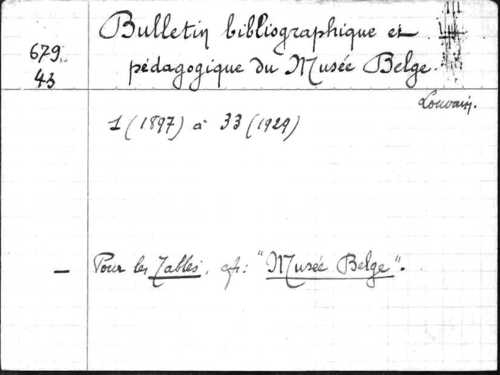 679.
43
Bulletin bibliographique et
pédagogique du Musée Belge.
Louvain.
1 (1897) à 33 (1929)
— Pour les Tables, cfr: "Musée Belge".